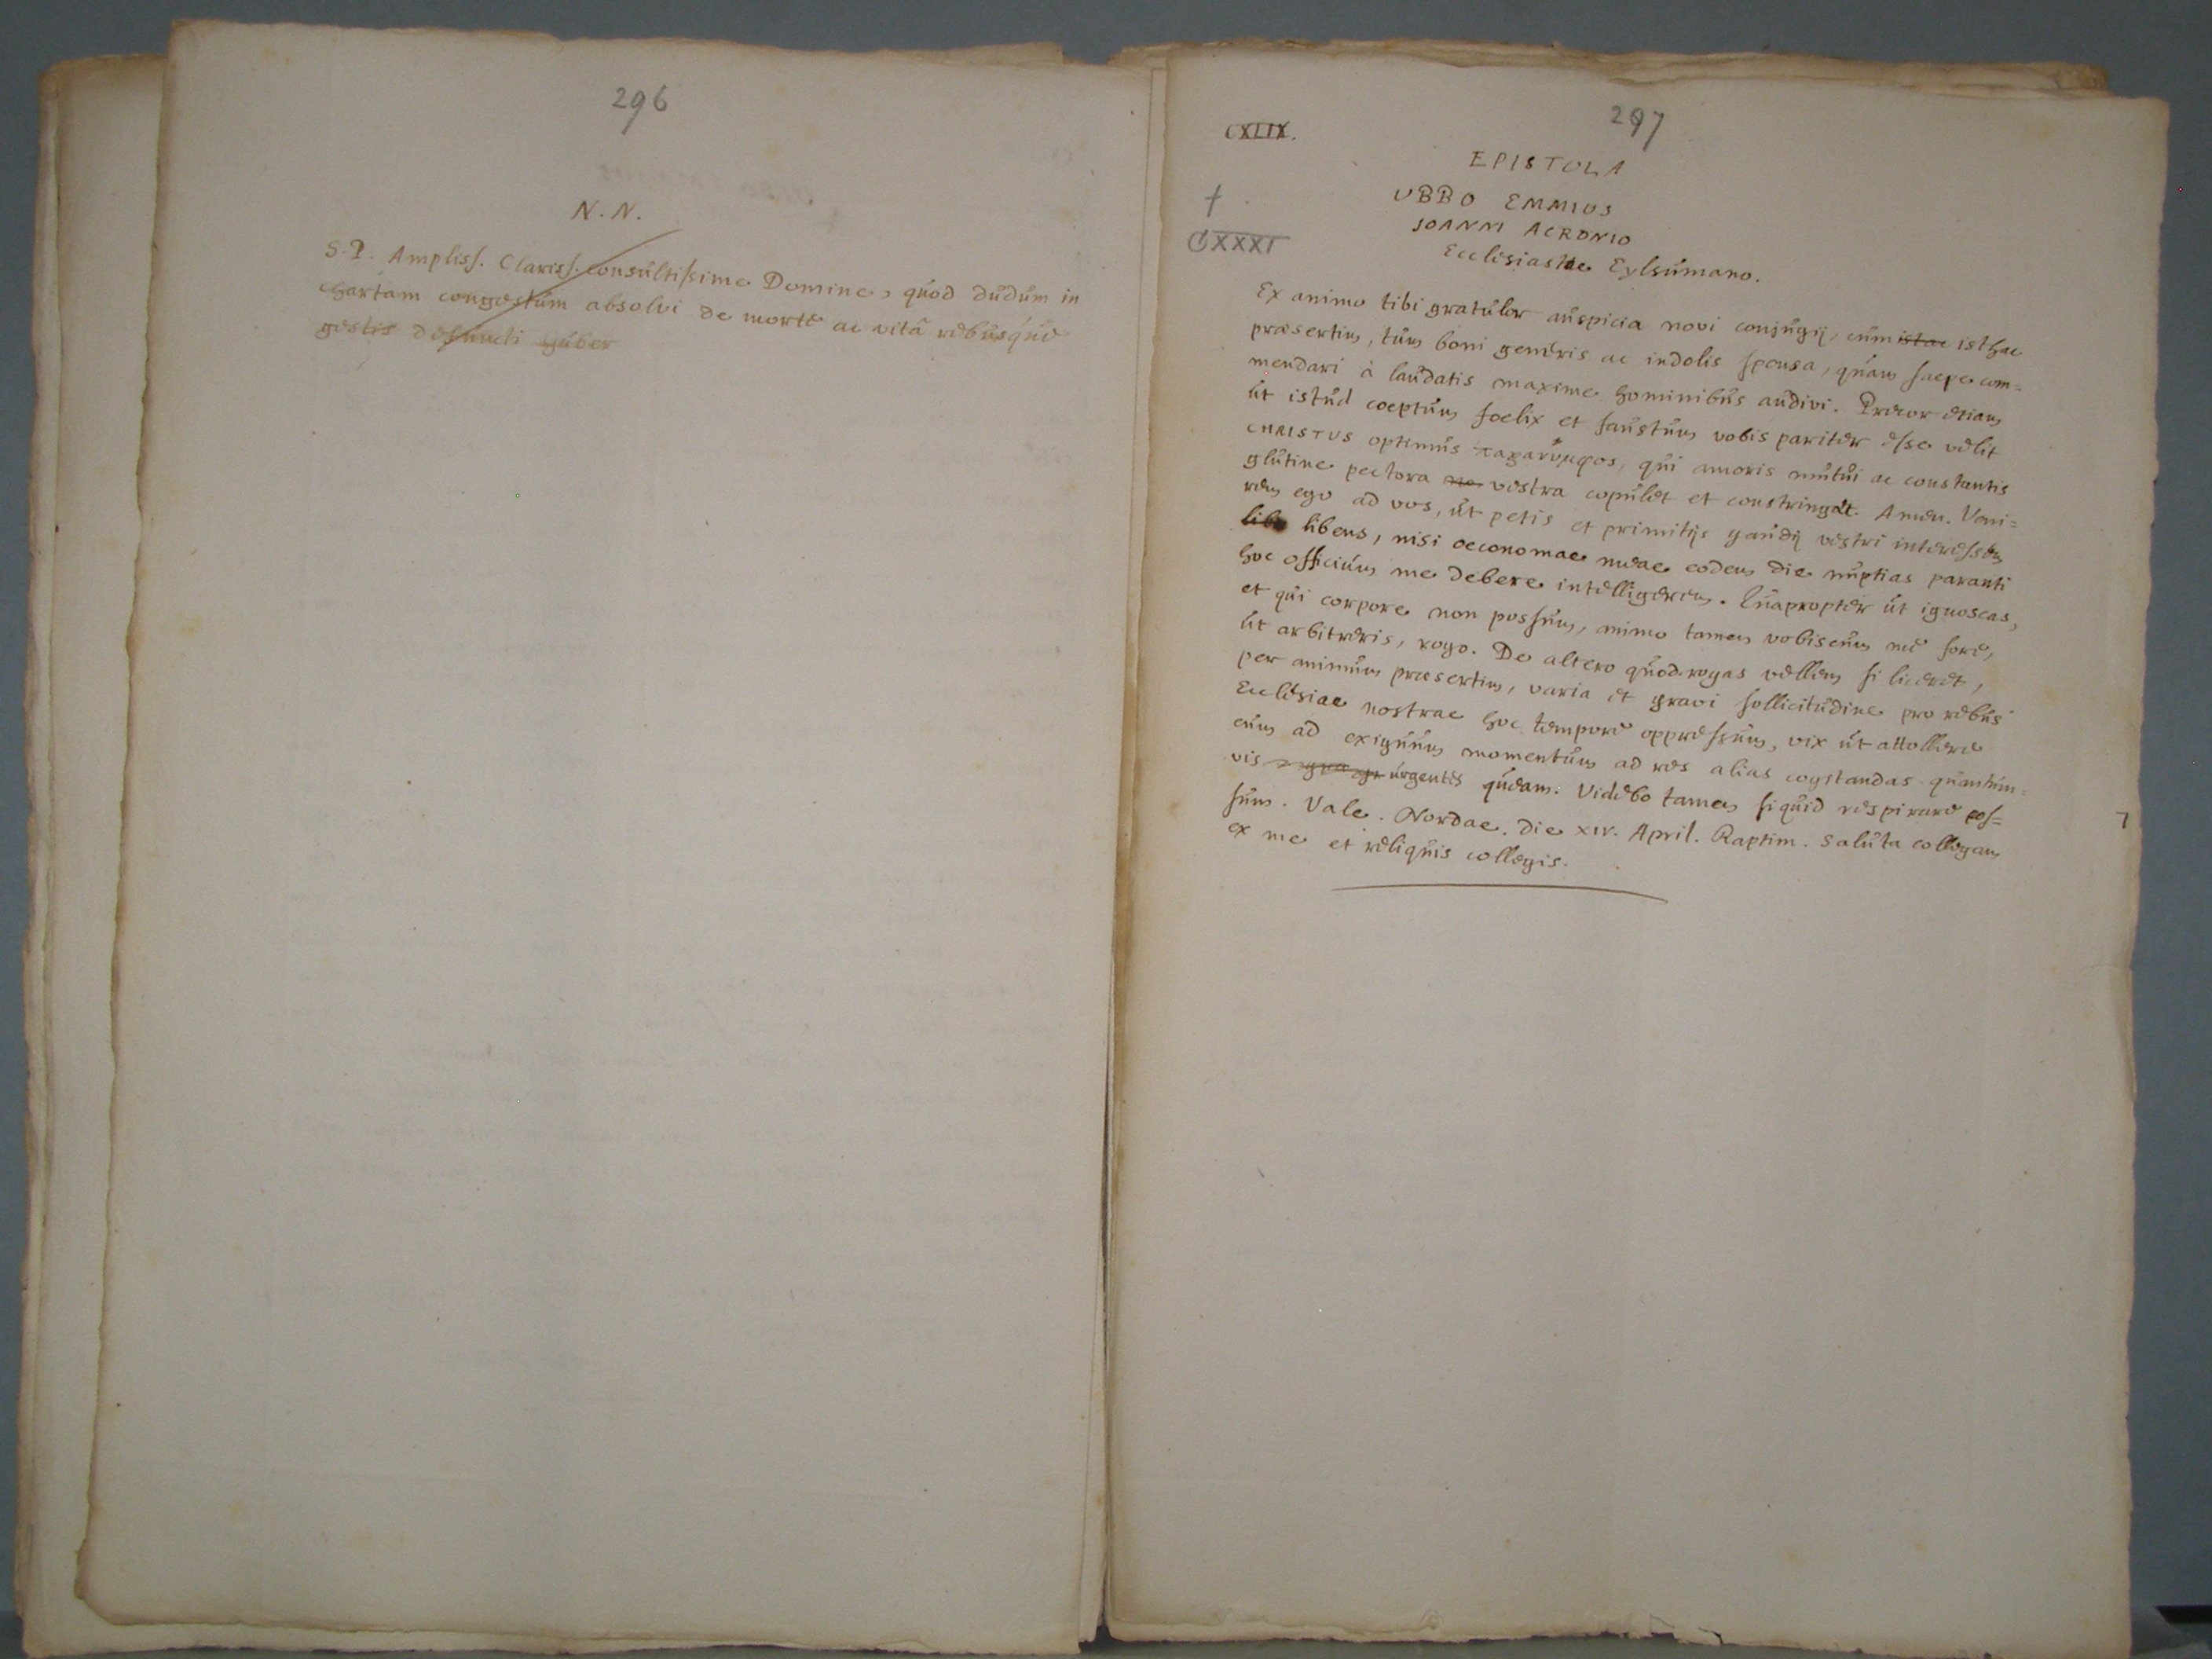 296
N. N.
S. P. Ampliss. Clariss. consultissime Domine, quod dudum in
chartam congestum absolvi de morte ac vitâ rebusque
gestis defuncti Guber
297
CXLIX.
EPISTOLA
†
UBBO EMMIUS
JOANNI ACRONIO
CXXXI
Ecclesiastae Eylsumano.
Ex animo tibi gratulor auspicia novi conjugij, cum istac isthac
praesertim, tum boni generis ac indolis sponsa, quam saepe com=
mendari à laudatis maxime hominibus audivi. Precor etiam
ut istud coeptum foelix et faustum vobis pariter esse velit
CHRISTUS optimus παρανυμφος, qui amoris mutui ac constantis
glutine pectora vestra copulet et constringat. Amen. Veni=
rem ego ad vos, ut petis et primitijs gaudij vestri interessem
libens, nisi oeconomae meae eodem die nuptias paranti
hoc officium me debere intelligerem. Quapropter ut ignoscas,
et qui corpore non possum, animo tamen vobiscum me fore,
ut arbitreris, rogo. De altero quod rogas vellem si liceret,
per animum praesertim, varia et gravi sollicitudine pro rebus
Ecclesiae nostrae hoc tempore oppressum, vix ut attollere
eum ad exiguum momentum ad res alias cogitandas quantum=
vis urgentes queam. Videbo tamen siquid respirare pos=
sum. Vale. Nordae. die XIV. April. Raptim. Saluta collegam
ex me et reliquis collegis.